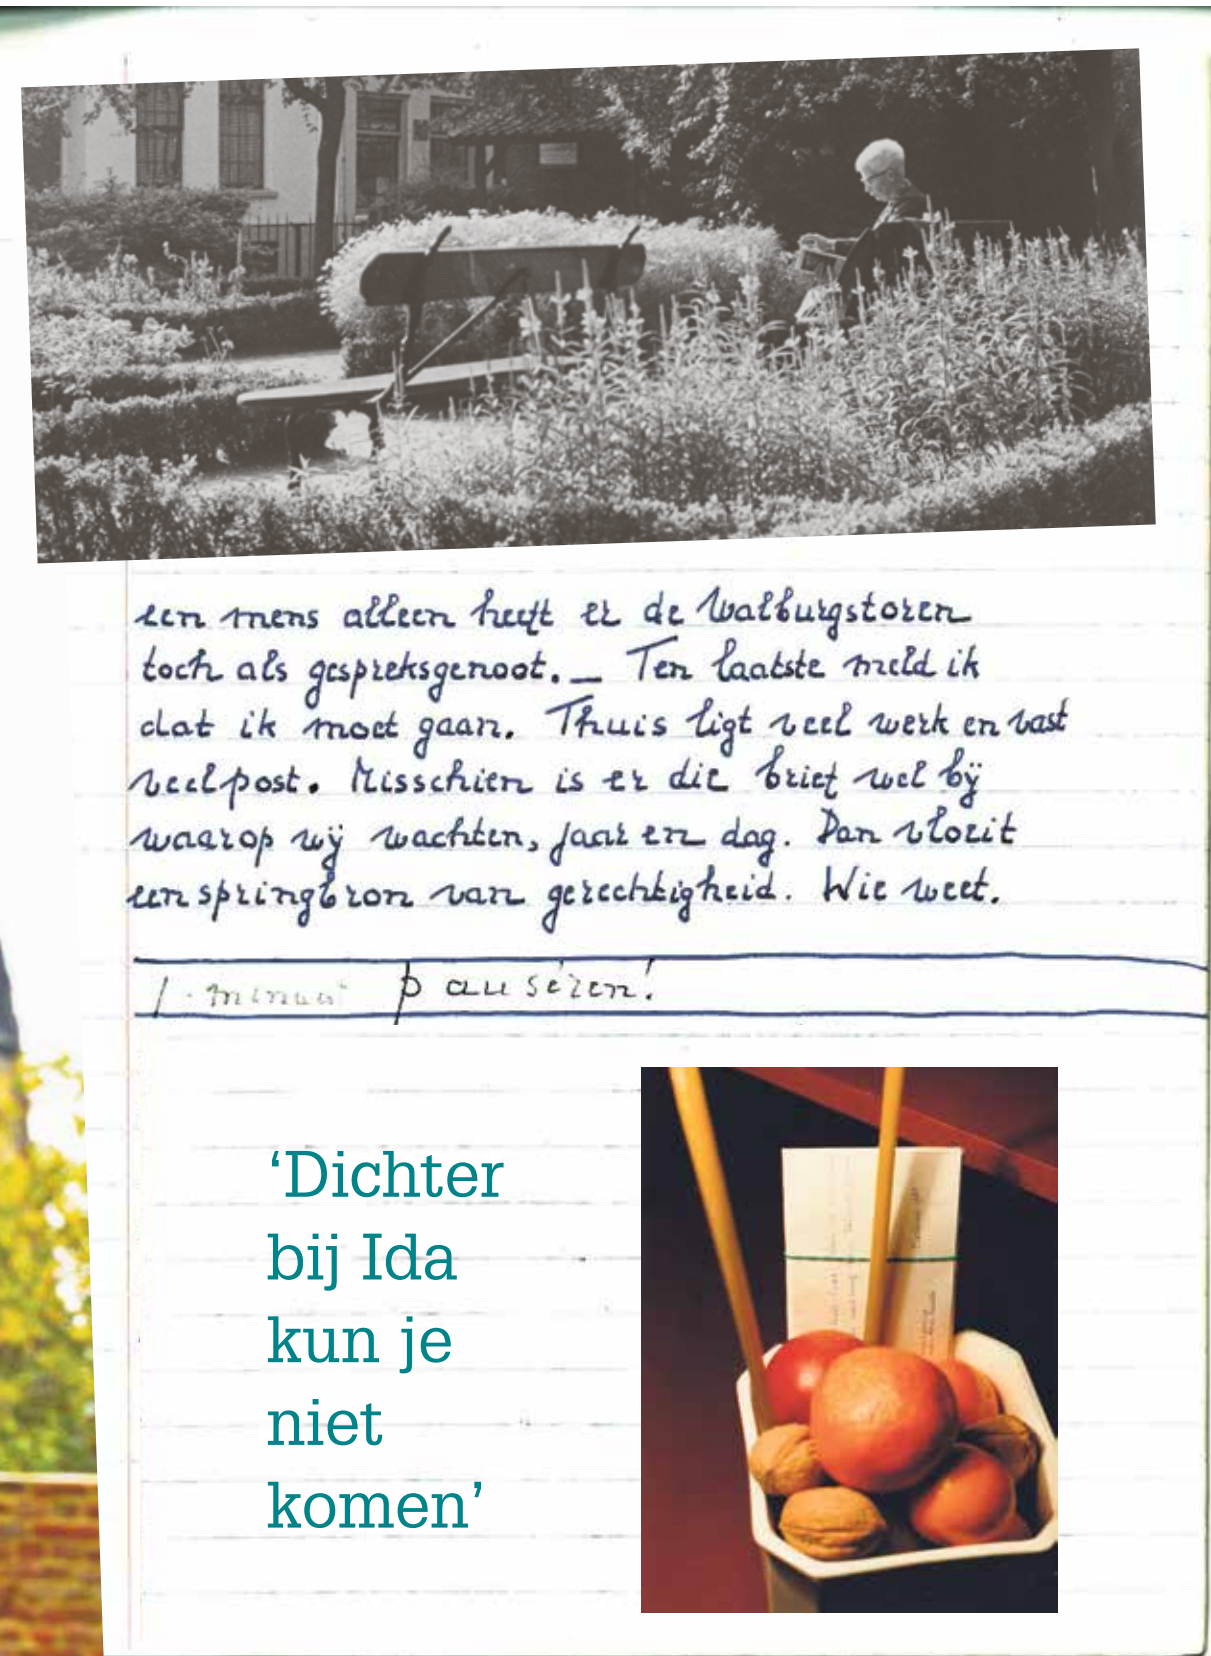 een mens alleen heeft er de Walburgstoren
toch als gespreksgenoot. _ Ten laatste meld ik
dat ik moet gaan. Thuis ligt veel werk en vast
veel post. Misschien is er die brief wel bij
waarop wij wachten, jaar en dag. Dan vloeit
een springbron van gerechtigheid. Wie weet.
1 minuut pauséren!
‘Dichter
bij Ida
kun je
niet
komen’